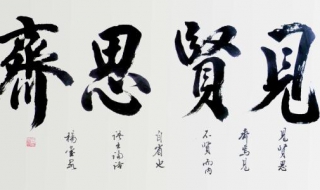 見賢思齊
見賢思
齊焉見
不賢而内
自省也
語出論語